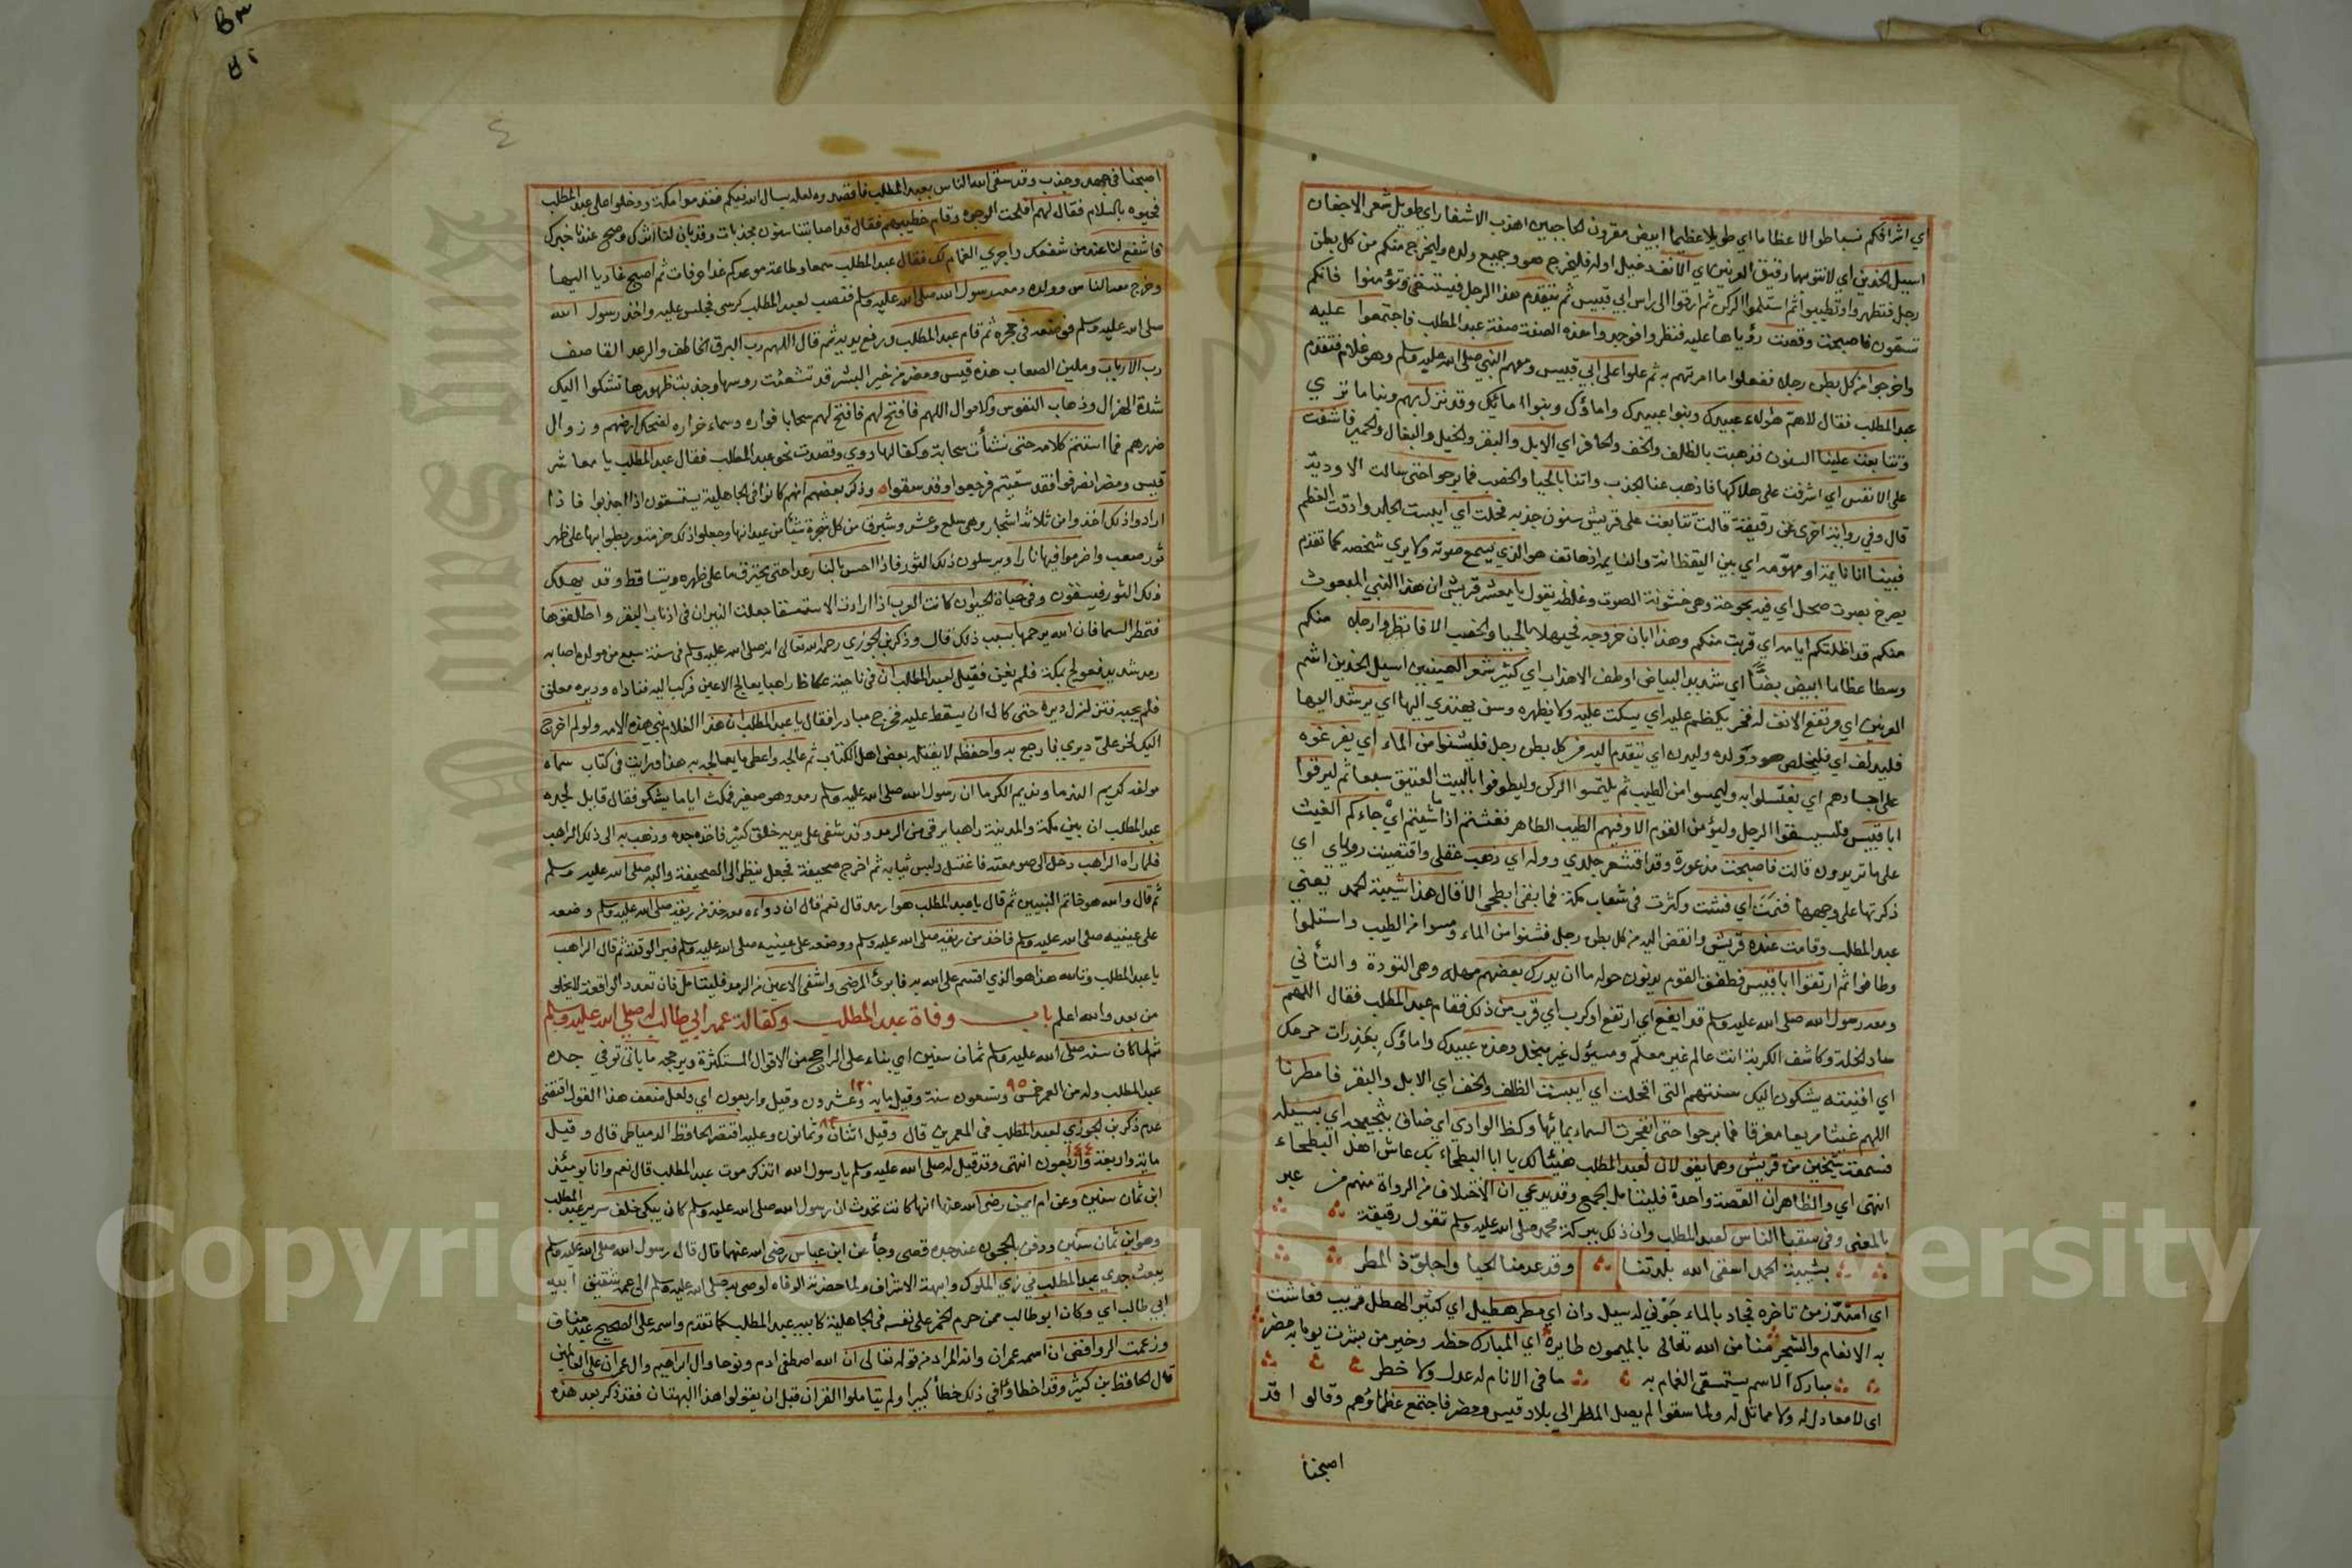 اي اشرافكم نسبا طوالا عظاما اي طويلا عظيما ابيض مقرون الحاجبين اهذب الاشفار اي طويل شعر الاجفان
اسيل الخدين اي لانتو بهما رقيق العرنين اي الانف دقيق اوله فليخرج هو وجميع ولده وليخرج منكم من كل بطن
رجل فتطهروا وتطيبوا ثم استلموا الركن ثم ارقوا الى راس ابي قبيس ثم يتقدم هذا الرجل فيستسقي وتؤمنوا فانكم
تسقون فاصبحت وقصت رؤياها عليهم فنظروا فوجدوا هذه الصفة صفة عبد المطلب فاجتمعوا عليه
واخرجوا من كل بطن رجلا ففعلوا ما امرتهم به ثم علوا على ابي قبيس ومعهم النبي صلى الله عليه وسلم وهو غلام فتقدم
عبد المطلب فقال لاهمّ هؤلاء عبيدك وبنوا عبيدك واماؤك وبنوا امائك وقد نزل بهم وبنا ما تري
وتتابعت علينا السنون فذهبت بالظلف والخف والحافر اي الابل والبقر والخيل والبغال والحمير فاشفت
على الانفس اي اشرفت على هلاكها فاذهب عنا الجدب واتنا بالحيا والخصب فما برحوا حتى سالت الاوديّة
قال وفي رواية اخرى عن رقيقة قالت تتابعت على قريش سنون جدبه قحلت اي ايبست الجلد وادقت العظم
فبينا انا نايمة او مهوّمة اي بين اليقظانة والنايمة اذ هاتف هو الذي يسمع صوته ولا يري شخصه كما تقدم
يصرخ بصوت صحل اي فيه بحوحة وهي خشونة الصوت وغلظه يقول يا معشر قريش ان هذا النبي المبعوث
منكم قد اظلتكم ايامه اي قربت منكم وهذا ابان خروجه فحيهلا بالحيا والخصب الا فانظروا رجلا منكم
وسطا عظاما ابيض بضّا اي شديد البياض اوطف الاهداب اي كثير شعر العينين اسيل الخدين اشم
العرنين اي مرتفع الانف له فخر يكظم عليه اي يسكت عليه ولا يظهره وسنن يهتدي اليها اي يرشد اليها
فليدلف اي فليخلص هو وولده وليدن اي يتقدم اليه من كل بطن رجل فليشنوا من الماء اي يفرغوه
على اجسادهم اي يغتسلوا به وليمسوا من الطيب ثم يلتمسوا الركن وليطوفوا بالبيت العتيق سبعا ثم ليرقوا
ابا قبيس فليستسقوا الرجل وليؤمن القوم الا وفيهم الطيب الطاهر فغثتم اذا ما شيتم اي جاءكم الغيث
على ما تريدون قالت فاصبحت مذعورة وقد اقشعر جلدي ووله اي ذهب عقلي واقتصيت روياي اي
ذكرتها على وجهها فنمت اي فشت وكثرت في شعاب مكة فما بقي ابطحي الا قال هذا شيبة الحمد يعني
عبد المطلب وقامت عنده قريش وانقض اليه من كل بطن رجل فشنوا من الماء ومسوا من الطيب واستلموا
وطافوا ثم ارتقوا ابا قبيس فطفق القوم يدنون حوله ما ان يدرك بعضهم مهله وهي التودة والتأني
ومعه رسول الله صلى الله عليه وسلم قد ايفع اي ارتفع او كرب اي قرب من ذلك فقام عبد المطلب فقال اللهم
ساد الخلة وكاشف الكربة انت عالم غير معلّم ومسؤل غير مبخل وهذه عبيدك واماؤك بعذرات حرمك
اي افنيته يشكون اليك سنتهم التي اقحلت اي ايبست الظلف والخف اي الابل والبقر فامطرنا
اللهم غيثا مريعا مغرقا فما برحوا حتى انفجرت السماء بمائها وكظ الوادي اي ضاق بثجيجه اي بسيله
فسمعت شيخين من قريش وهما يقولان لعبد المطلب هنيئا لك يا ابا البطحاء بك عاش اهل البطحاء
انتهى اي والظاهر ان القصة واحدة فليتامل الجمع وقد يدعي ان الاختلاف من الرواة منهم من عبر
بالمعنى وفي سقيا الناس لعبد المطلب وان ذلك ببركة محمد صلى الله عليه وسلم تقول رقيقة
بشيبة الحمد اسقى الله بلدتنا وقد عدمنا الحيا واجلوّذ المطر
اي امتدّ زمن تاخره فجاد بالماء جَوْني له سبل دان اي مطر هطيل اي كثير الهطل قريب فعاشت
به الانعام والشجر منا من الله تعالى بالميمون طايره اي المبارك حظه وخير من بشرت يوما به مضر
مبارك الاسم يستسقى الغمام به ما في الانام له عدل ولا خطر
اي لا معادل له ولا مماثل له ولما سقوا لم يصل المطر الي بلاد قيس ومضر فاجتمع عظماؤهم وقالوا قد
اصبحنا
٤
اصبحنا في جهد وجذب وقد سقى الله الناس بعبد المطلب فاقصدوه لعله يسال الله فيكم فقدموا مكة ودخلوا على عبد المطلب
فحيوه بالسلام فقال لهم افلحت الوجوه وقام خطيبهم فقال قد اصابتنا سنون مجدبات وقد بان لنا اثرك وصح عندنا خبرك
فاشفع لنا عند من شفعك واجري الغمام لك فقال عبد المطلب سمعا وطاعة موعدكم غدا عرفات ثم اصبح غاديا اليها
وخرج معه الناس وولده ومعه رسول الله صلى الله عليه وسلم فنصب لعبد المطلب كرسي فجلس عليه واخذ رسول الله
صلى الله عليه وسلم فوضعه في حجره ثم قام عبد المطلب ورفع يديه ثم قال اللهم رب البرق الخاطف والرعد القاصف
رب الارباب وملين الصعاب هذه قيس ومضر من خير البشر قد تشعثت روسها وحدبت ظهورها تشكوا اليك
شدة الهزال وذهاب النفوس والاموال اللهم فافتح لهم فافتح لهم سحابا فواره وسماء خراره لتضحك ارضهم وزوال
ضررهم فما استتم كلامه حتى نشأت سحابة وكفا لها دوي وقصدت نحو عبد المطلب فقال عبد المطلب يا معاشر
قيس ومضر انصرفوا فقد سقيتم فرجعوا وقد سقوا وذكر بعضهم انهم كانوا في الجاهلية يستسقون اذا اجدبوا فاذا
ارادوا ذلك اخذوا من ثلاثة اشجار وهي سلع وعشر وشبرق من كل شجرة شيئا من عيدانها وجعلوا ذلك حزمة وربطوا بها على ظهر
ثور صعب واضرموا فيها نارا ويرسلون ذلك الثور فاذا احس بالنار عدا حتى يحترق ما على ظهره ويتساقط وقد يهلك
ذلك الثور فيسقون وفي حياة الحيوان كانت العرب اذا ارادت الاستسقا جعلت النيران في اذناب البقر واطلقوها
فتمطر السما فان الله يرحمها بسبب ذلك قال وذكر بن الجوزي رحمه الله تعالى انه صلى الله عليه وسلم في سنة سبع من مولده اصابه
رمد شديد فعولج بمكة فلم يغن فقيل لعبد المطلب ان في ناحية عكاظ راهبا يعالج الاعين فركب اليه فناداه وديره مغلق
فلم يجبه فتزلزل ديره حتى كاد ان يسقط عليه فخرج مبادرا فقال يا عبد المطلب ان هذا الغلام نبي هذه الامه ولو لم اخرج
اليك لخر عليّ ديري فارجع به واحفظه لا يقتله بعض اهل الكتاب ثم عالجه واعطى ما يعالجه به هذا ورايت في كتاب سماه
مولفه كريم الندما ونديم الكرما ان رسول الله صلى الله عليه وسلم رمد وهو صغير فمكث اياما يشكو فقال قايل لجده
عبد المطلب ان بين مكة والمدينة راهبا يرقي من الرمد وقد شفى على يديه خلق كثير فاخذه جده وذهب به الى ذلك الراهب
فلما راه الراهب دخل الى صومعته فاغتسل ولبس ثيابه ثم اخرج صحيفة فجعل ينظر الى الصحيفة واليه صلى الله عليه وسلم
ثم قال والله هو خاتم النبيين ثم قال يا عبد المطلب هو ارمد قال نعم قال ان دواءه معه خذ من ريقه صلى الله عليه وسلم وضعه
على عينيه صلى الله عليه وسلم فاخذ من ريقه صلى الله عليه وسلم ووضعه على عينيه صلى الله عليه وسلم فبرا لوقته ثم قال الراهب
يا عبد المطلب وتالله هذا هو الذي اقسم على الله به فابرئ المرضى واشفي الاعين من الرمد فليتامل فان تعدد الواقعة لا يخلو
من بعد والله اعلم باب وفاة عبد المطلب وكفالة عمه ابي طالب له صلي الله عليه وسلم
ثم لما كان سنه صلى الله عليه وسلم ثمان سنين اي بناء على الراجح من الاقوال المتكثرة ويرجحه ما ياتي توفي جده
عبد المطلب وله من العمر خمس ٩٥ وتسعون سنة وقيل مايه ١٢٠ وعشرون وقيل واربعون اي ولعل ضعف هذا القول اقتضى
عدم ذكر بن الجوزي لعبد المطلب في المعمرين قال وقيل اثنان ٨٢ وثمانون وعليه اقتصر الحافظ الدمياطي قال وقيل
ماية واربعة ١٤٤ واربعون انتهى وقد قيل له صلى الله عليه وسلم يا رسول الله اتذكر موت عبد المطلب قال نعم وانا يومئذ
ابن ثمان سنين وعن ام ايمن رضي الله عنها انها كانت تحدث ان رسول الله صلى الله عليه وسلم كان يبكي خلف سرير عبد المطلب
وهو ابن ثمان سنين ودفن بالحجون عند جده قصى وجأ عن ابن عباس رضي الله عنهما قال قال رسول الله صلى الله عليه وسلم
يبعث جدي عبد المطلب في زي الملوك وابهة الاشراف ولما حضرته الوفاه اوصى به صلى الله عليه وسلم الى عمه شقيق ابيه
ابي طالب اي وكان ابو طالب ممن حرم الخمر على نفسه في الجاهلية كابيه عبد المطلب كما تقدم واسمه على الصحيح عبد مناف
وزعمت الروافض ان اسمه عمران وانه المراد من قوله تعالى ان الله اصطفى ادم ونوحا وال ابراهيم وال عمران على العالمين
قال الحافظ بن كثير وقد اخطاوا في ذلك خطأ كبيرا ولم يتاملوا القران قبل ان يقولوا هذا البهتان فقد ذكر بعد هذه
Copyright © King Saud University